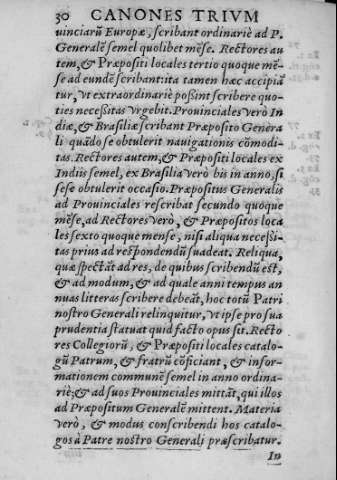 30 CANONES TRIVM
uinciarũ Europæ, scribant ordinariè ad P.
Generalẽ semel quolibet mẽse. Rectores au
tem, & Præpositi locales tertio quoque mẽ-
se ad eundẽ scribant: ita tamen hæc accipiã
tur, vt extraordinariè possint scribere quo-
ties necessitas vrgebit. Prouinciales verò In
diæ, & Brasiliæ scribant Præposito Genera
li quãdo se obtulerit nauigationis cõmodi-
tas. Rectores autem, & Præpositi locales ex
Indiis semel, ex Brasilia verò bis in anno, si
sese obtulerit occasio. Præpositus Generalis
ad Prouinciales rescribat secundo quoque
mẽse, ad Rectores verò, & Præpositos loca
les sexto quoque mense, nisi aliqua necessi-
tas prius ad respõdendũ suadeat. Reliqua,
quæ spectãt ad res, de quibus scribendũ est,
& ad modum, & ad quale anni tempus an
nuas litteras scribere debeãt, hoc totũ Patri
nostro Generali relinquitur, vt ipse pro sua
prudentia statuat quid facto opus sit. Recto
res Collegiorũ, & Præpositi locales catalo-
gũ Patrum, & fratrũ cõficiant, & infor-
mationem communẽ semel in anno ordina-
riè; & ad suos Prouinciales mittãt, qui illos
ad Præpositum Generalẽ mittent. Materia
verò, & modus conscribendi hos catalo-
gos à Patre nostro Generali præscribatur.
In